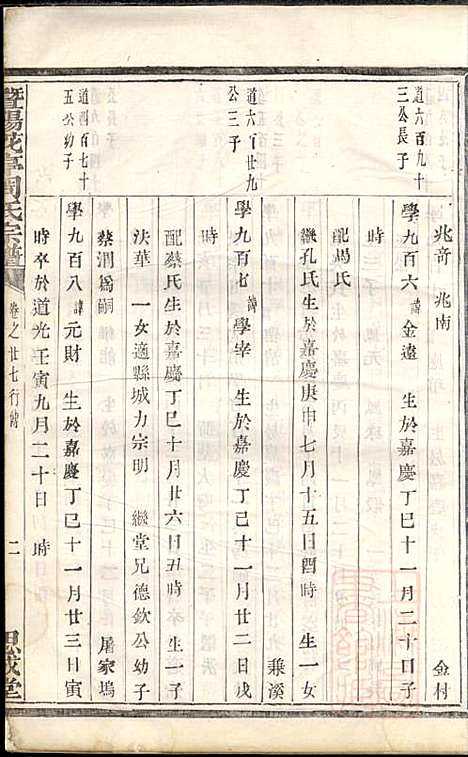 兆奇 兆南 金村
道六百九十三公長子
學九百六諱金遠 生於嘉慶丁巳十一月二十日子
時
配馮氏
繼孔氏生於嘉慶庚申七月十五日酉時 生一女
乗溪
道六百廿九公三子
學九百七諱學宰 生於嘉慶丁巳十一月廿二日戌
時
配蔡氏生於嘉慶丁巳十月廿六日丑時 生一子
決華 一女適縣城力宗明 繼堂兄德欽公幼子
蔡潤爲嗣 屠家塢
道四百七十五公幼子
學九百八諱元財 生於嘉慶丁巳十一月廿三日寅
時卒於道光壬寅九月二十日 時
暨陽花亭周氏宗譜 卷之廿七行傳 二 思成堂